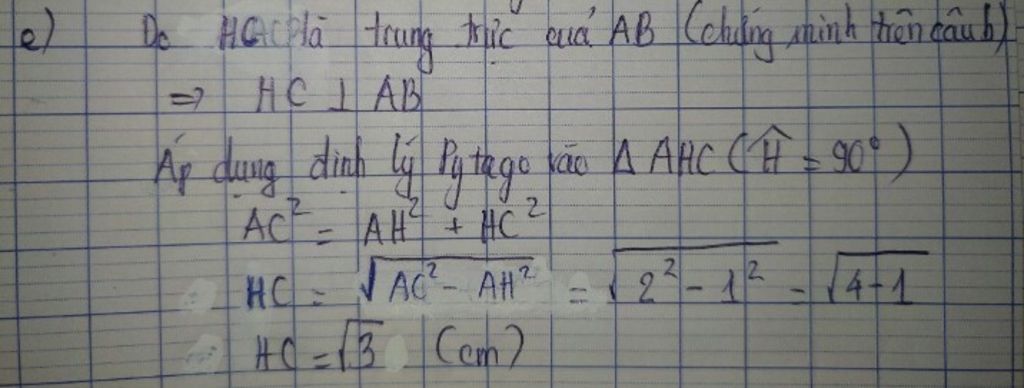 e) Do HC là trung trực của AB (chứng minh trên câu b)
⇒ HC ⊥ AB
Áp dụng định lý Pytago vào Δ AHC (Ĥ = 90°)
AC² = AH² + HC²
HC = √(AC² - AH²) = √(2² - 1²) = √(4-1)
HC = √3 (cm)